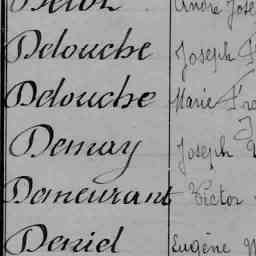 André José
Delouche Joseph
Delouche Marie
Demay Joseph
Demeurant Victor
Deniel Eugène